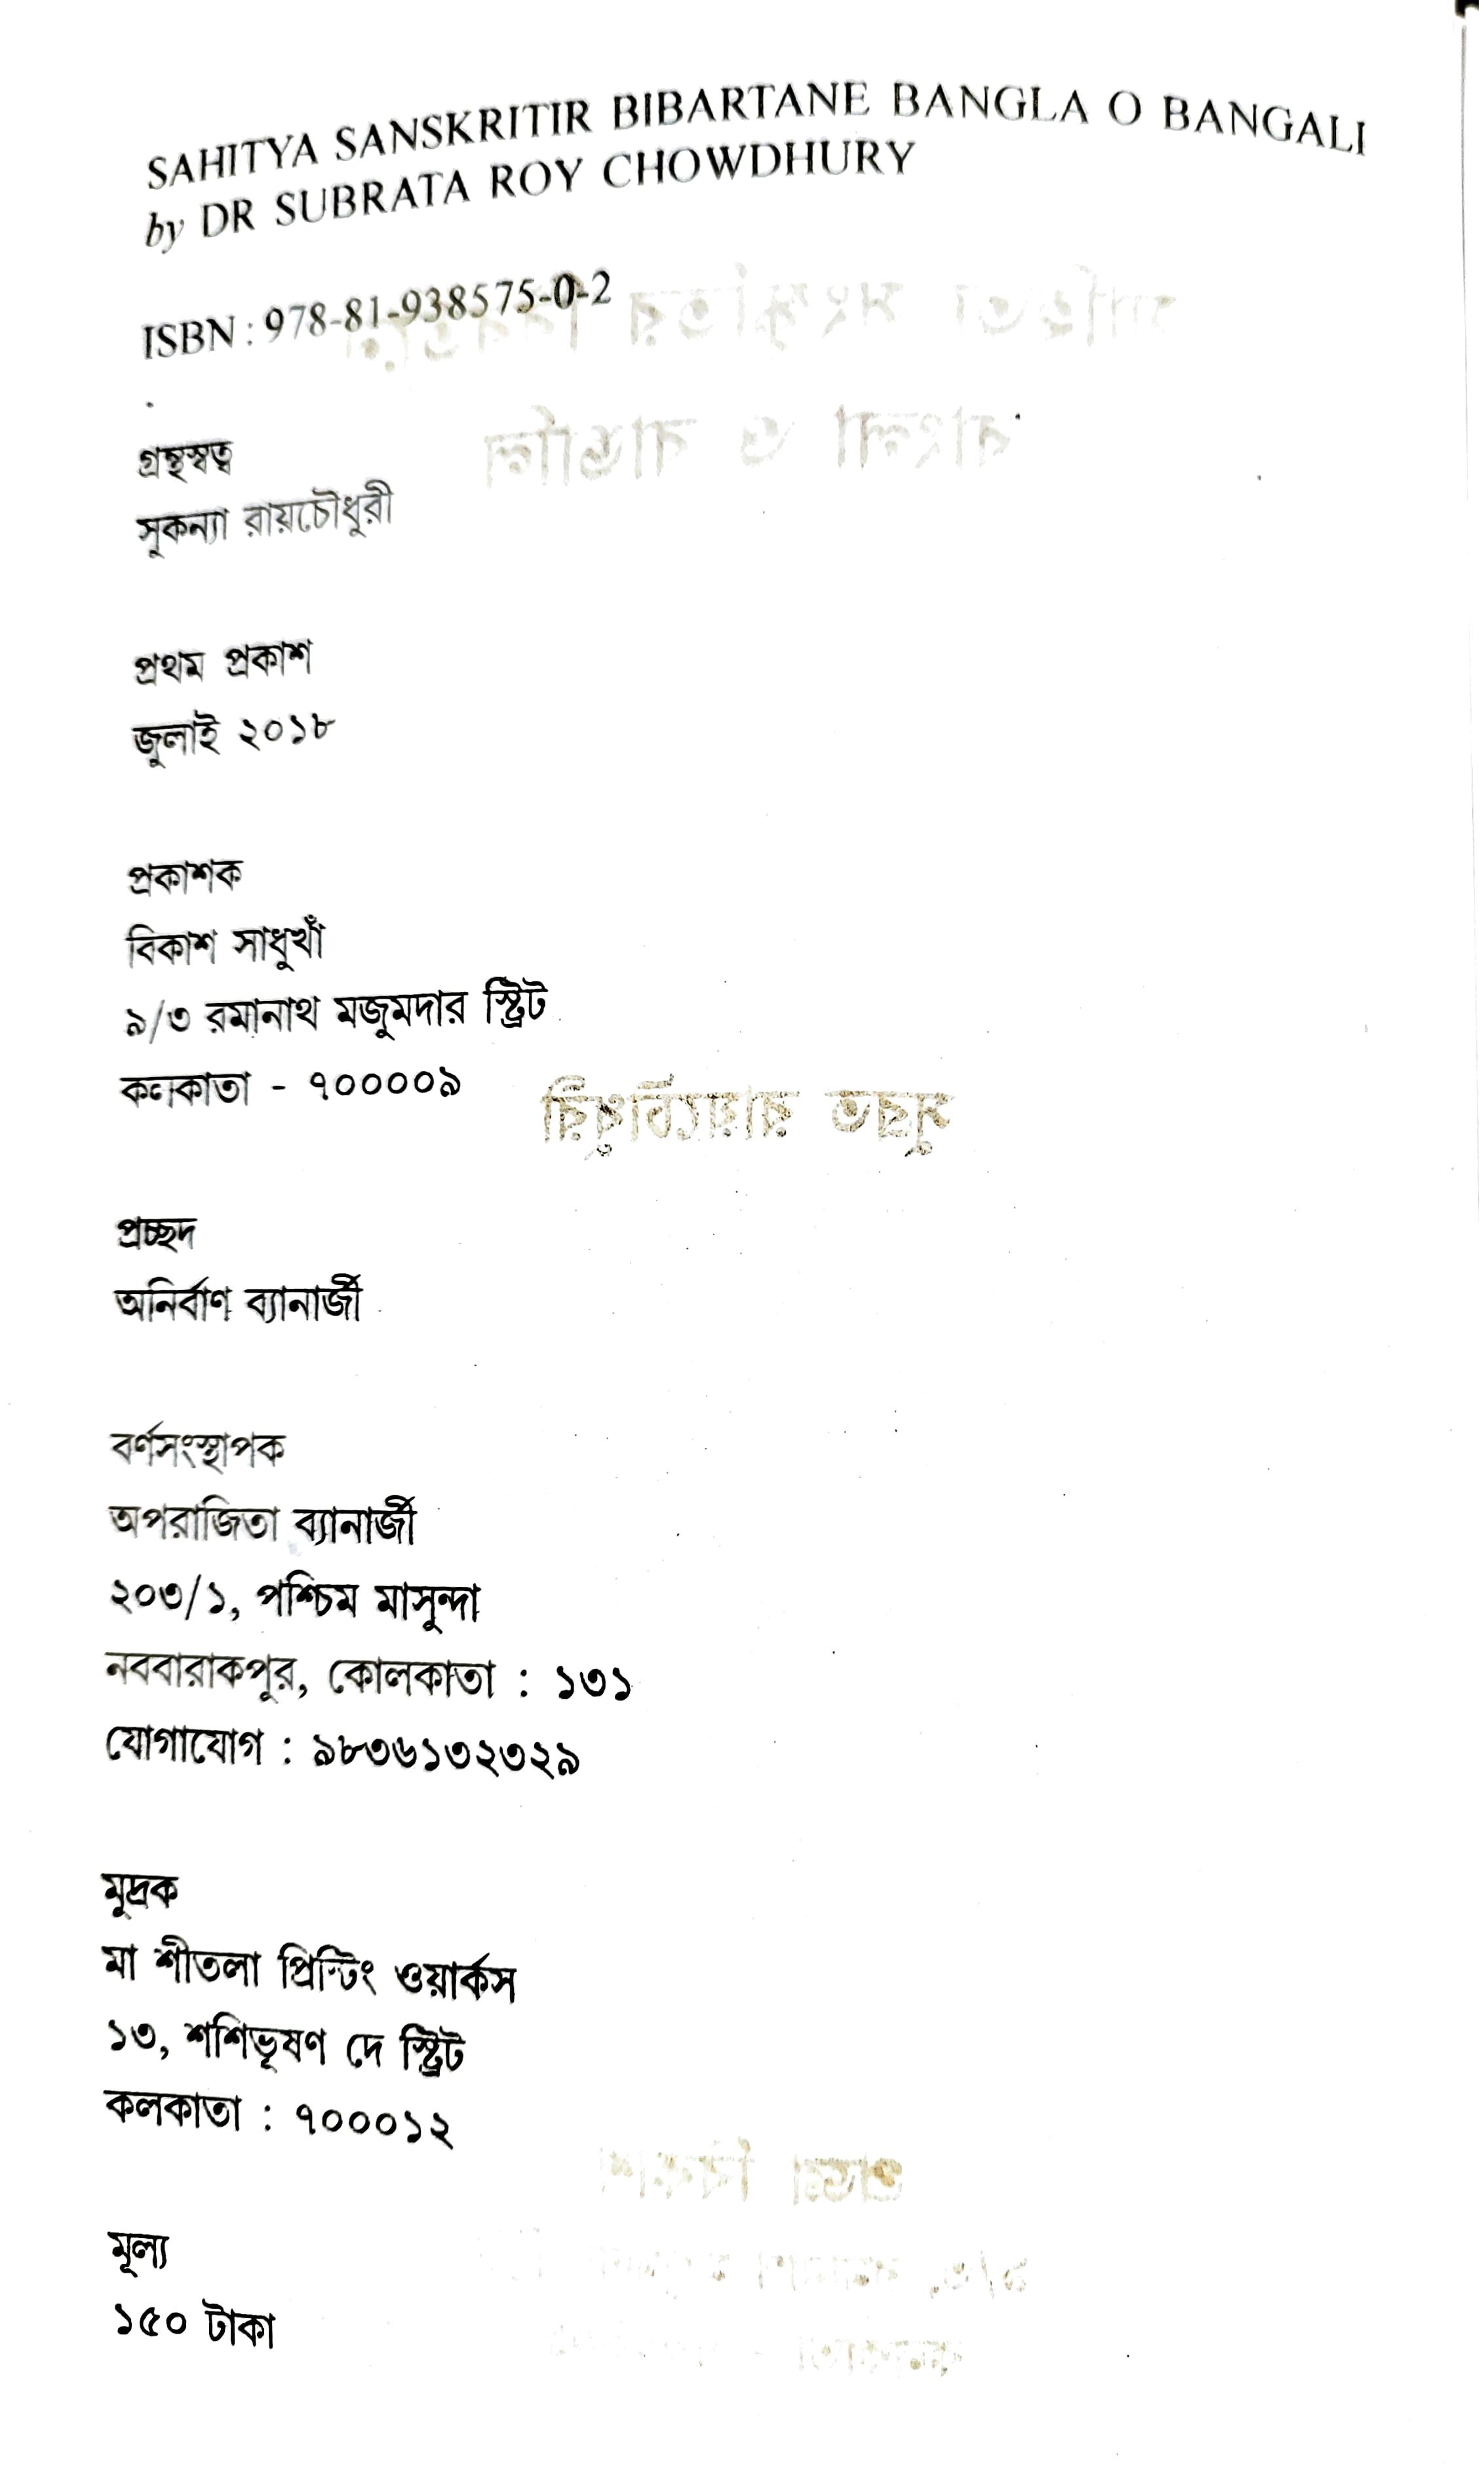 SAHITYA SANSKRITIR BIBARTANE BANGLA O BANGALI
by DR SUBRATA ROY CHOWDHURY
ISBN : 978-81-938575-0-2
গ্রন্থস্বত্ব
সুকন্যা রায়চৌধুরী
প্রথম প্রকাশ
জুলাই ২০১৮
প্রকাশক
বিকাশ সাধুখাঁ
৯/৩ রমানাথ মজুমদার স্ট্রিট
কলকাতা - ৭০০০০৯
প্রচ্ছদ
অনির্বাণ ব্যানার্জী
বর্ণসংস্থাপক
অপরাজিতা ব্যানার্জী
২০৩/১, পশ্চিম মাসুন্দা
নববারাকপুর, কোলকাতা : ১৩১
যোগাযোগ : ৯৮৩৬১৩২৩২৯
মুদ্রক
মা শীতলা প্রিন্টিং ওয়ার্কস
১৩, শশিভূষণ দে স্ট্রিট
কলকাতা : ৭০০০১২
মূল্য
১৫০ টাকা